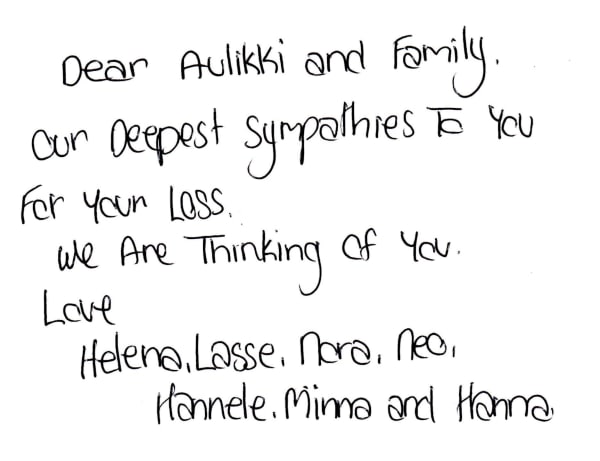 Dear Aulikki and Family.
Our Deepest Sympathies To You
For Your Loss.
We Are Thinking Of You.
Love
Helena, Lasse, Nora, Neo,
Hannele, Minna and Hanna,